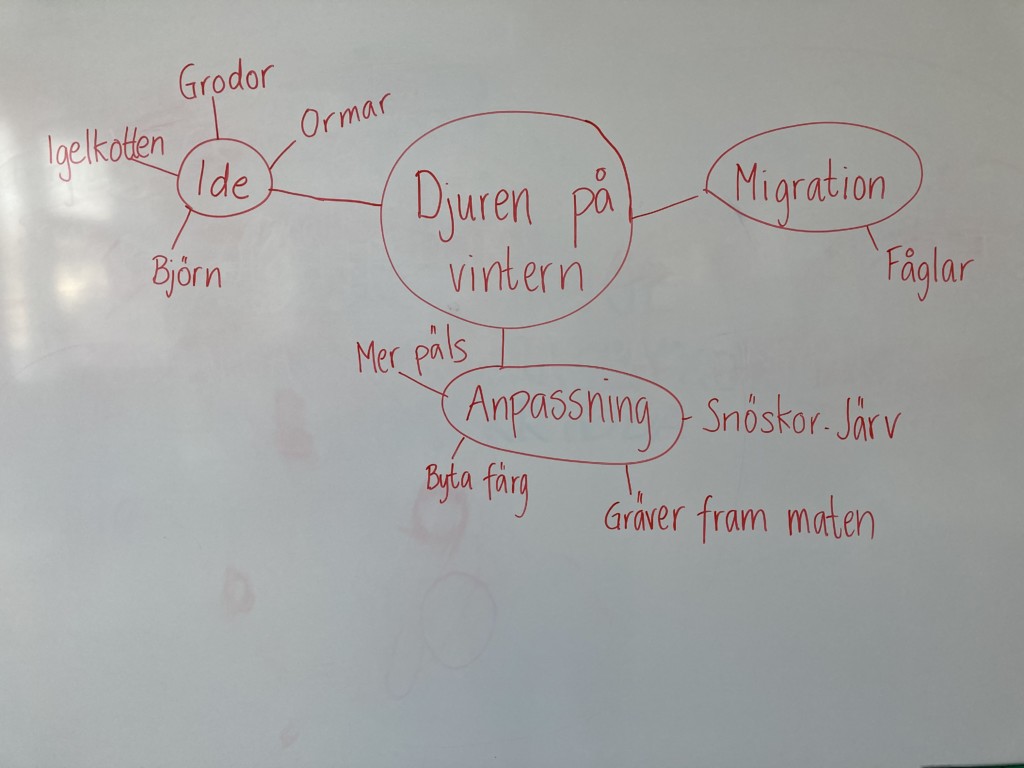 Grodor
Ormar
Igelkotten
Ide
Björn
Djuren på
vintern
Migration
Fåglar
Mer päls
Anpassning
Snöskor. Järv
Byta färg
Gräver fram maten